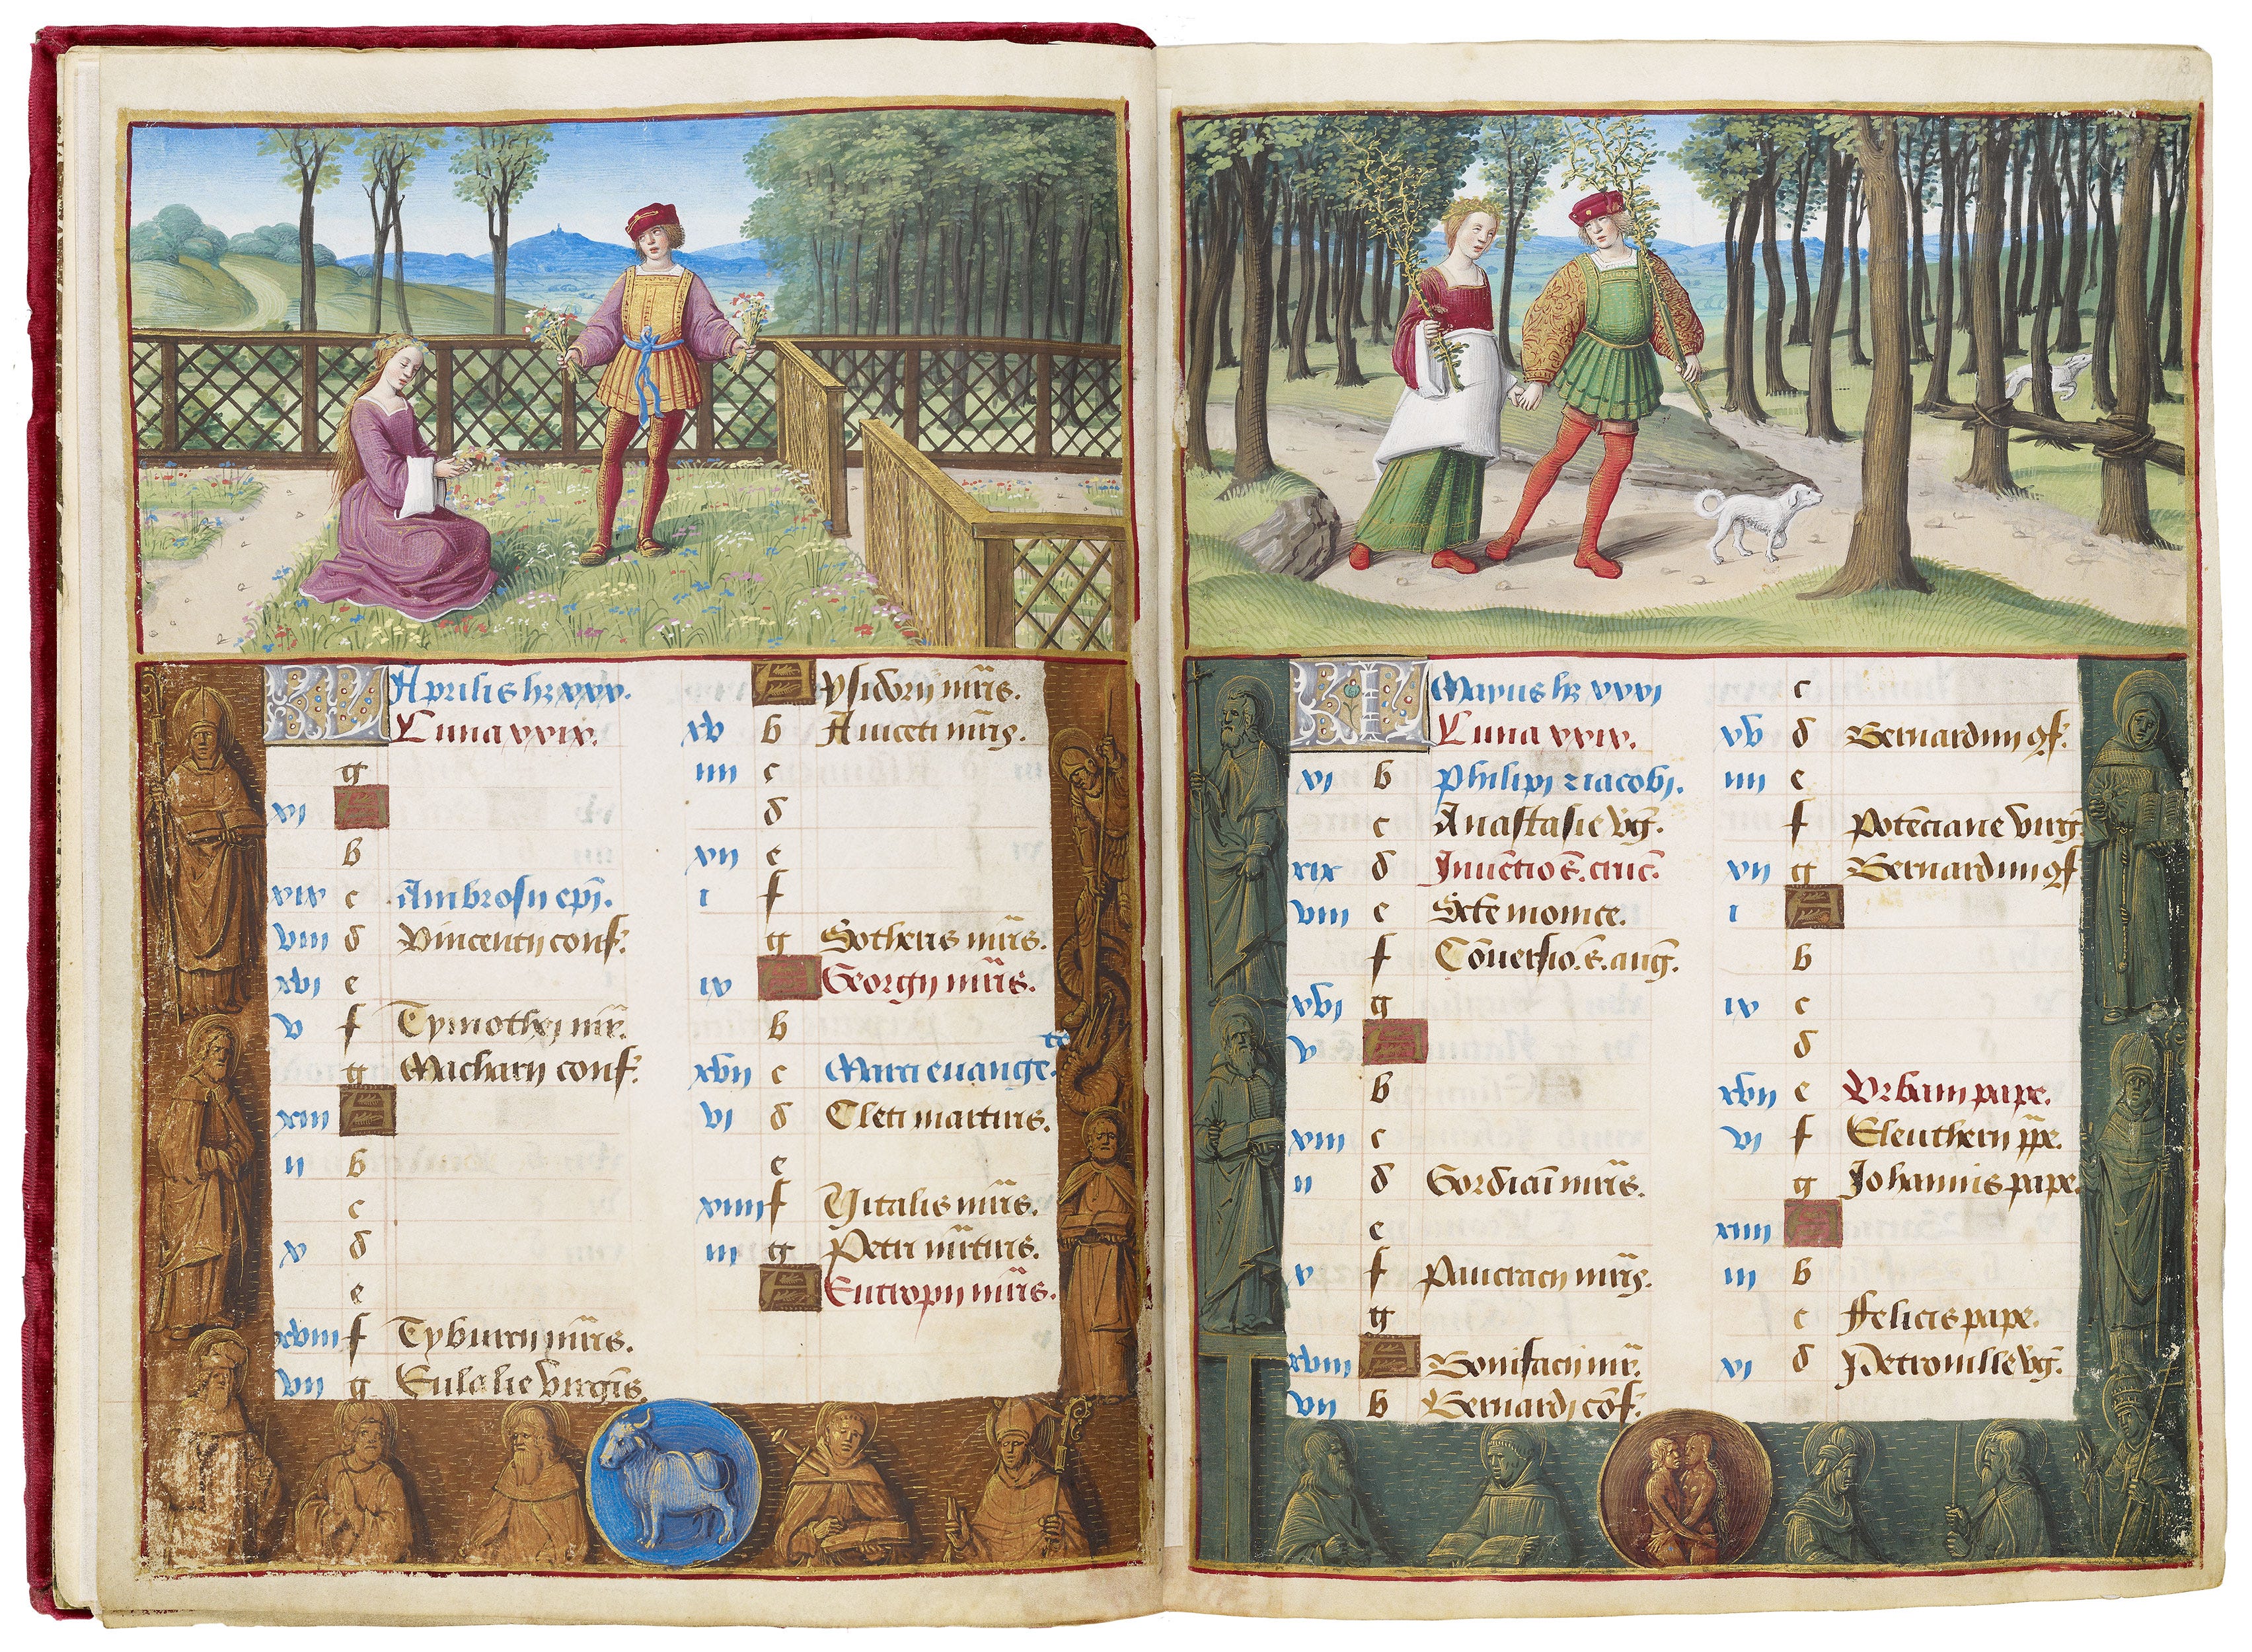 KL Aprilis hz xxx.
Luna xxix.
g
xi A
b
xix c Ambrosii epi.
viii d Vincentii conf.
xvi e
v f Tymothei mr.
g Macharii conf.
xiii A
ii b
c
x d
e
xviii f Tyburcii mris.
vii g Eulalie virginis.
A ysidorii mris.
xv b Aniceti mris.
iiii c
d
xii e
i f
g Sotheris mris.
ix A Georgii mris.
b
xvii c Marci evange. te
vi d Cleti martiris.
e
xiiii f Vitalis mris.
iii g Petri mrtiris.
A Eutropii mris.
KL Mayus hz xxxi
Luna xxix.
xi b philipi z iacobi.
c Anastasie vg.
xix d Inuetio s. cruc.
viii e Scte monice.
f Conersio. s. aug.
xvi g
v A
b
xiii c
ii d Gordiani mris.
e
x f pancracii mris.
g
xviii A Bonifacii mr.
vii b Bernardi cof.
c
xv d Bernardini qf.
iiii e
f potenciane virg.
xii g Bernardini qf
i A
b
ix c
d
xvii e Vrbani pape.
vi f Eleutherii ppe.
g Johannis pape.
xiiii A
iii b
c ffelicis pape.
xi d Petronille vg.